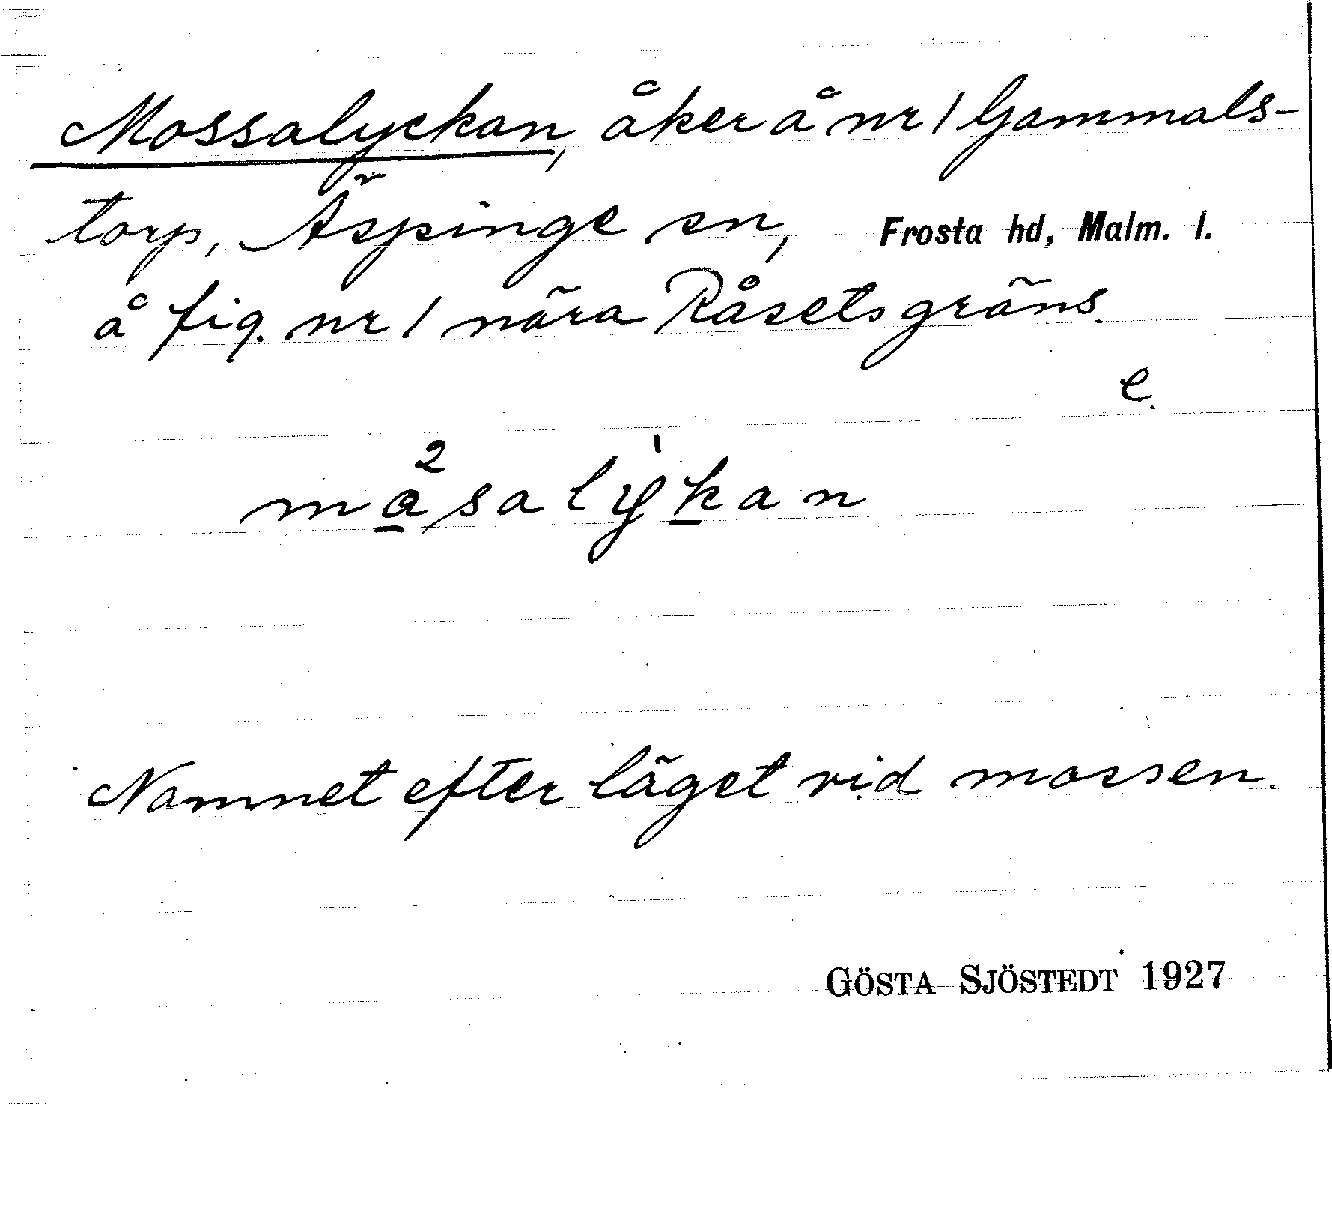 Mossalyckan, åker å nr 1 Gammals-
torp, Äspinge sn, Frosta hd, Malm. l.
å fig. nr 1 nära Råsets gräns.
e.
2 1
måsalykan
Namnet efter läget vid mossen.
GÖSTA SJÖSTEDT 1927